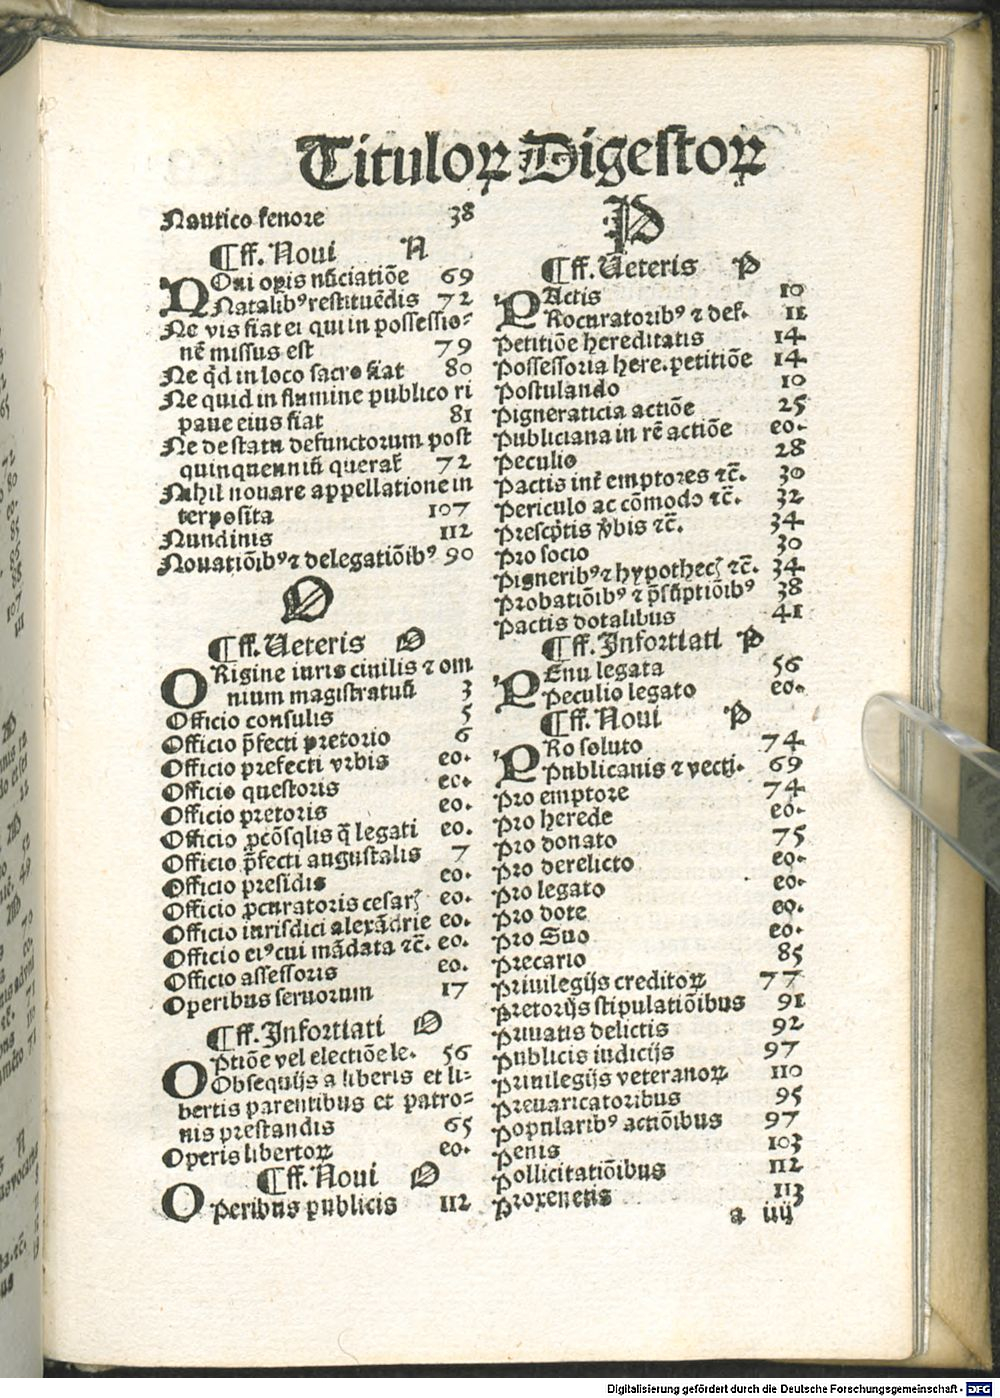 Tituloꝝ Digestoꝝ
Nautico fenore 38
¶ff. Noui N
NOui opis nūciatiōe 69
Natalibꝰ restituēdis 72
Ne vis fiat ei qui in possessio⸗
nē missus est 79
Ne qd in loco sacro fiat 80
Ne quid in flumine publico ri
paue eius fiat 81
Ne de statu defunctorum post
quinquenniū querat᷑ 72
Nihil nouare appellatione in
terposita 107
Nundinis 112
Nouatiōibꝰ ⁊ delegatiōibꝰ 90
O
¶ff. Ueteris O
ORigine iuris ciuilis ⁊ om
nium magistratuū 3
Officio consulis 5
Officio p̄fecti pretorio 6
Officio prefecti vrbis eo.
Officio questoris eo.
Officio pretoris eo.
Officio ꝓcōsulis q̄ legati eo.
Officio p̄fecti augustalis 7
Officio presidis eo.
Officio ꝓcuratoris cesarꝭ eo.
Officio iurisdici alexādrie eo.
Officio eiꝰ cui mādata ⁊c̄. eo.
Officio assessoris eo.
Operibus seruorum 17
¶ff. Infortiati O
OPtiōe vel electiōe le. 56
Obsequijs a liberis et li⸗
bertis parentibus et patro⸗
nis prestandis 65
Operis libertoꝝ eo.
¶ff. Noui O
OPeribus publicis 112
P
¶ff. Ueteris P
PActis 10
Rocuratoribꝰ ⁊ def. 11
Petitiōe hereditatis 14
Possessoria here. petitiōe 14
Postulando 10
Pigneraticia actiōe 25
Publiciana in rē actiōe eo.
Peculio 28
Pactis int᷑ emptores ⁊c̄. 30
Periculo ac cōmodo ⁊c̄. 32
Prescptis v̓bis ⁊c̄. 34
Pro socio 30
Pigneribꝰ ⁊ hypothecꝭ ⁊c̄. 34
Probatiōibꝰ ⁊ p̄sūptiōibꝰ 38
Pactis dotalibus 41
¶ff. Infortiati P
PEnu legata 56
Peculio legato eo.
¶ff. Noui P
PRo soluto 74
Publicanis ⁊ vecti. 69
Pro emptore 74
Pro herede eo.
Pro donato 75
Pro derelicto eo.
Pro legato eo.
Pro dote eo.
Pro Suo eo.
Precario 85
Priuilegijs creditoꝝ 77
Pretorijs stipulatiōibus 91
Priuatis delictis 92
Publicis iudicijs 97
Priuilegijs veteranoꝝ 110
Preuaricatoribus 95
Popularibꝰ actiōibus 97
Penis 103
Pollicitatiōibus 112
Proxeneris 113
a iiij
Digitalisierung gefördert durch die Deutsche Forschungsgemeinschaft - DFG